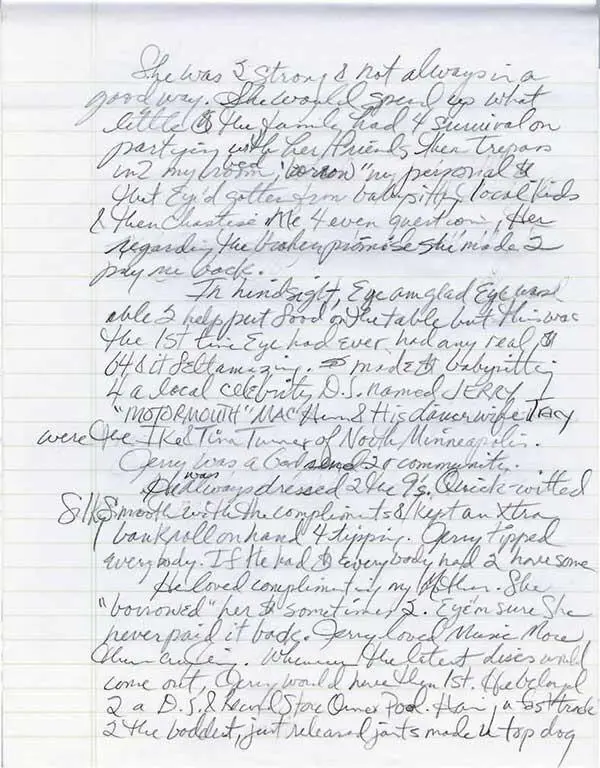 She was 2 strong & not always in a
good way. She would spend up what
little $ the family had 4 survival on
partying with her friends then trespass
in2 my bedroom, "borrow" my personal $
that Eye'd gotten from babysitting local kids
& then chastise me 4 even questioning Her
regarding the broken promise she made 2
pay me back.
In hindsight, Eye am glad Eye was
able 2 help put food on the table but this was
the 1st time Eye had ever had any real $
b4 & it felt amazing. made $ babysitting
4 a local celebrity D.J. named JERRY
"MOTORMOUTH" MAC. He & His dancer wife TRACY
were the Ike & Tina Turner of North Minneapolis.
Jerry was a God send 2 r community.
He was always dressed 2 the 9's. Quick-witted
Silk Smooth with the compliments & kept an Xtra
bankroll on hand 4 tipping. Jerry tipped
everybody. If He had $ everybody had 2 have some
He loved complimenting my Mother. She
"borrowed" her $ sometimes 2. Eye'm sure She
never paid it back. Jerry loved Music More
than anything. Whenever the latest discs would
come out, Jerry would have them 1st. He belonged
2 a D.J. & Record Store Owner Pool. Having a fast track
2 the baddest, just released jams made u top dog